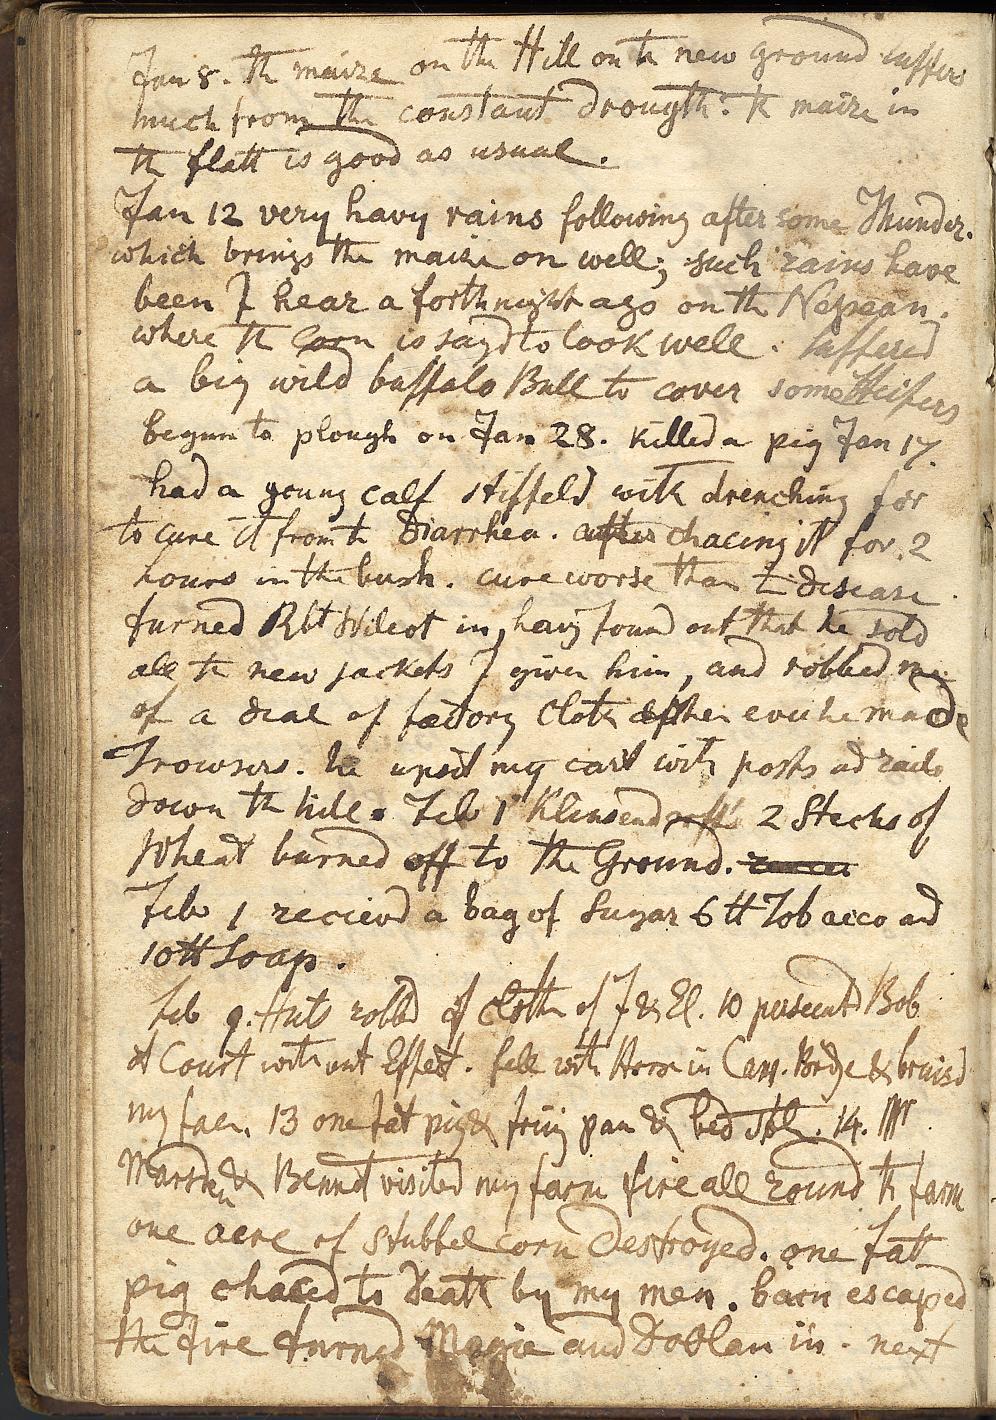 Jan 8. th maize on the Hill on th new ground suffers
much from the constant drougth: th maize in
th flatt is good as usual.
Jan 12 very havy rains following after some Thunder.
which brings the maize on well; such rains have
been I hear a forthnight ago on th Nepean.
where th corn is sayd to look well. suffered
a big wild buffalo Bull to cover some Heifers
begun to plough on Jan 28. killed a pig Jan 17.
had a young calf stiffeld with drenching for
to cure it from th Diarrhea. after chacing it for 2
hours in the bush. cure worse than th disease.
turned Rbt Wilcot in, havg found out that he sold
all th new jackets I given him, and robbed me
of a deal of factory cloth he made
Trowsers. he upset my cart with posts ad rails
down th hill. Feb 1 Klensendorff's 2 Stacks of
Wheat burned off to the Ground.
Feb 1 recievd a bag of Sugar 6 tt Tobacco and
10 tt Soap.
Feb 9. Hut robbd of cloth of F & El. 10 persecuted Bob
at Court without Effect. fell with Horse in Cam. Bridge & bruisd
my face. 13 one fat pig & friing pan & bed stol. 14. Mr
Marsden & Bennet visited my farm fire all round th farm
one acre of stubbel corn Destroyed. one fatt
pig chaced to Death by my men. barn escaped
the fire turned Magie and Doblan in. next